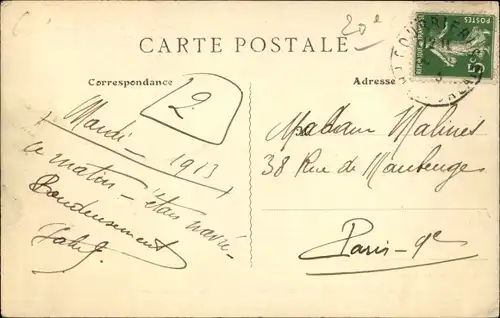 20e
CARTE POSTALE
POSTES
5c
Correspondance
Adresse
2
Mardi - 1913
ce matin - étais navré -
Tendrement
Madame Malines
38 Rue de Maubeuge
Paris - 9e